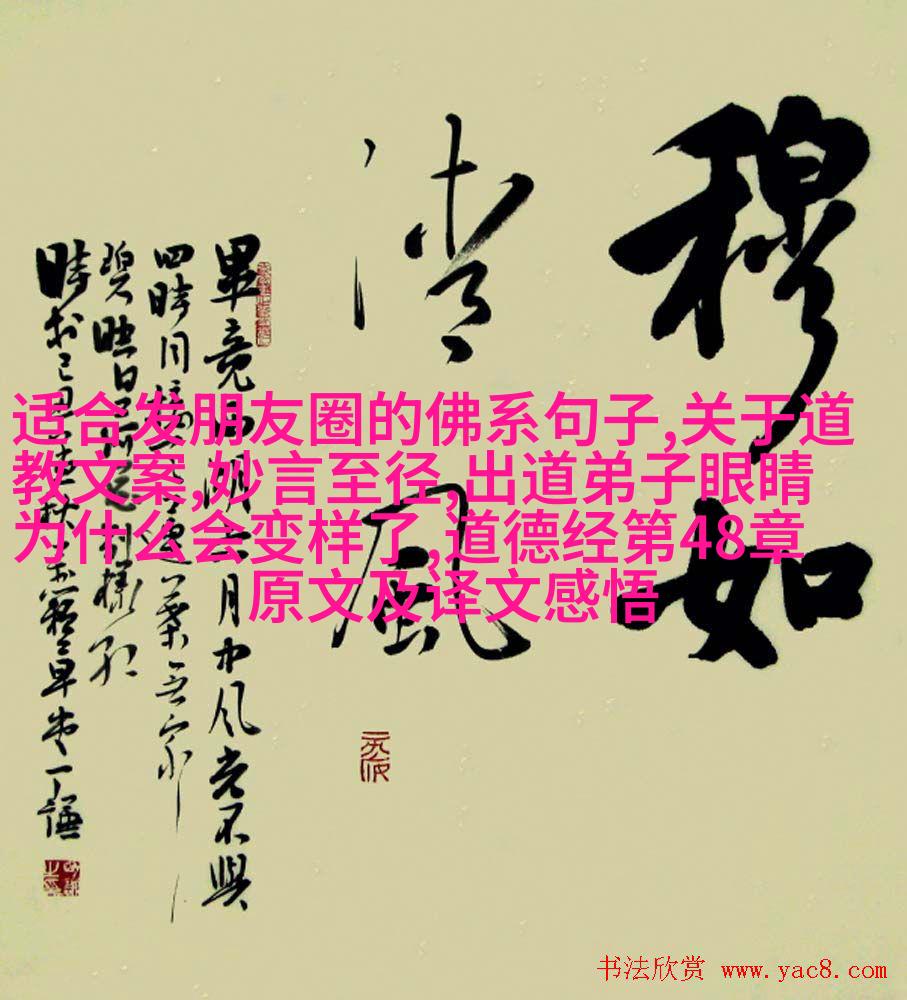 穆如
清風
畢竟西湖六月中風光不與
四時同接天蓮葉無窮
碧映日荷花別樣紅
適合发朋友圈的佛系句子,关于道
教文案,妙言至径,出道弟子眼睛
为什么会变样了,道德经第48章
原文及译文感悟
书法欣赏 www.yac8.com